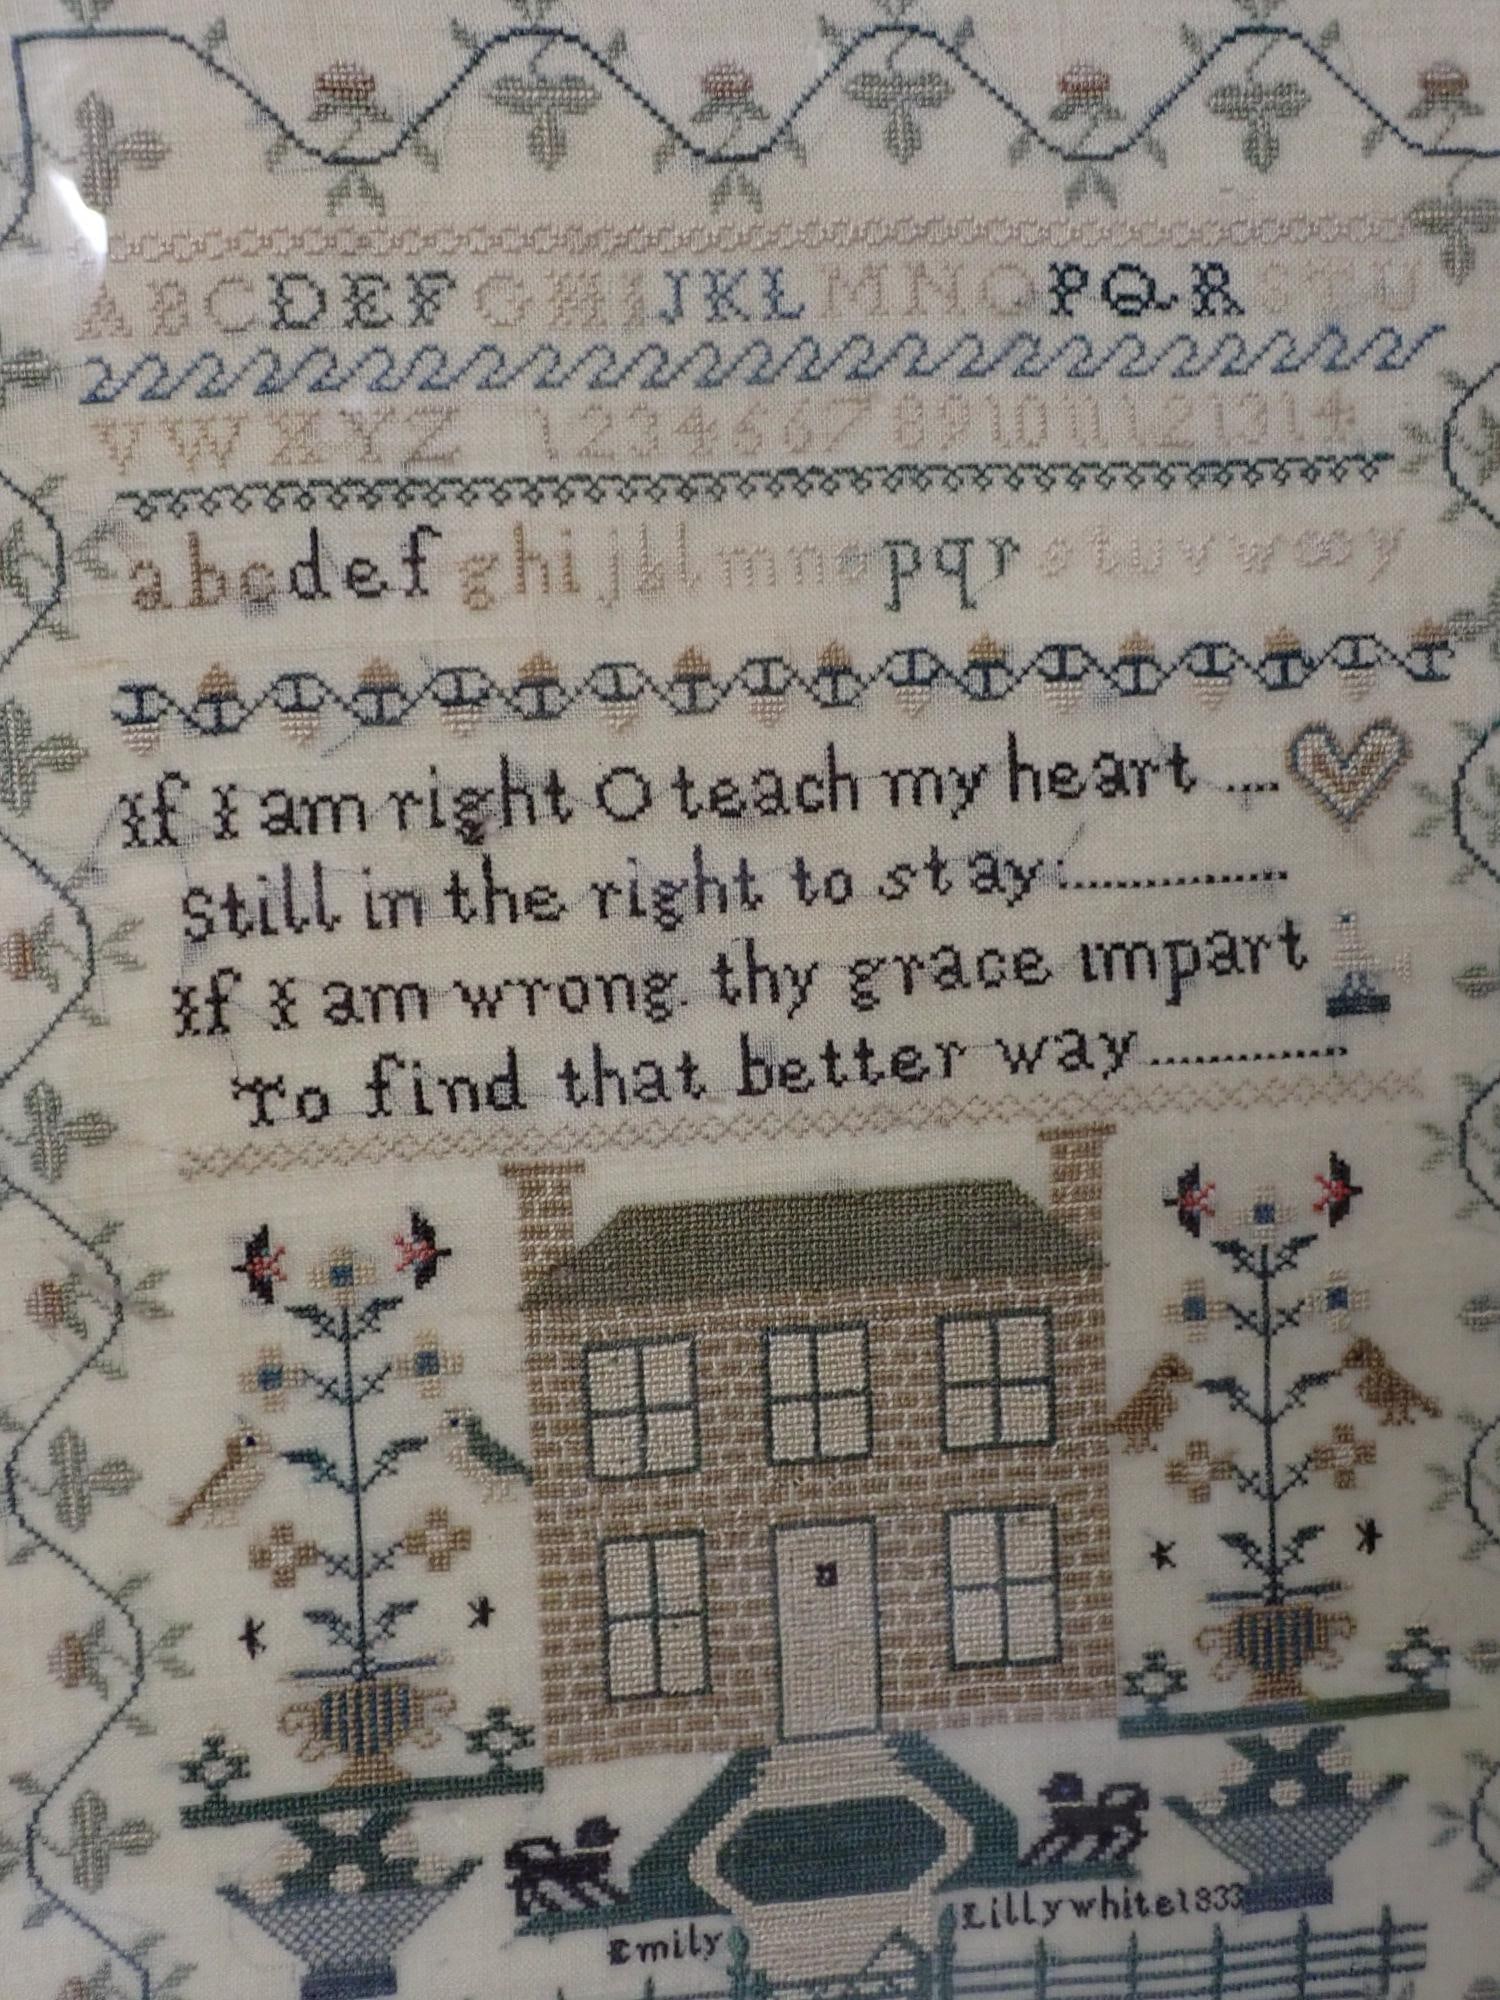 ABCDEFGHIJKLMNOPQRSTU
VWXYZ 1234567891011121314
abcdefghijklmnopqrstuvwxy
If I am right O teach my heart ....
Still in the right to stay:...............
If I am wrong. thy grace impart
To find that better way.............
Emily Lillywhite 1833